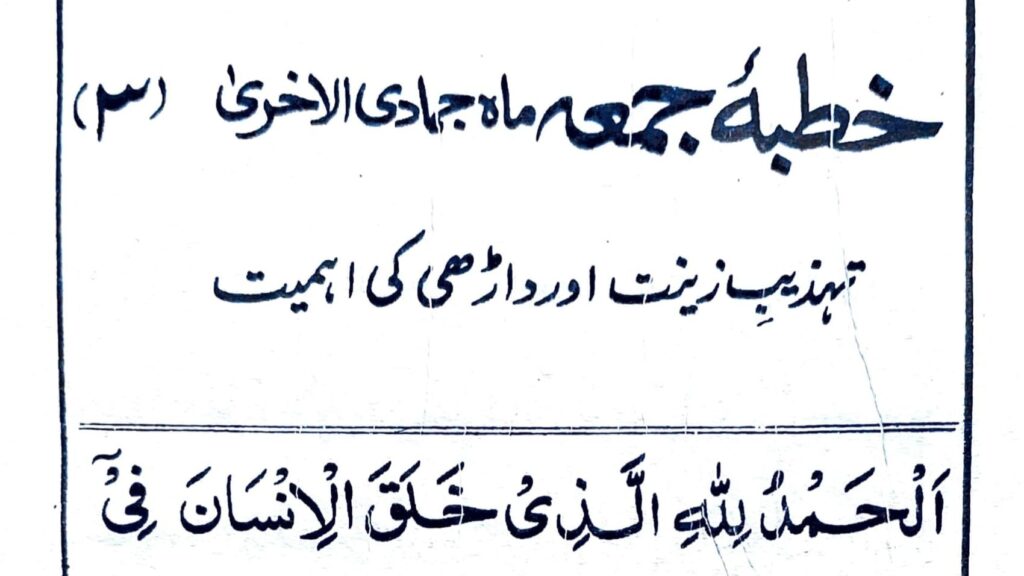 خطبۂ جمعہ ماہ جمادی الاخریٰ (۳)
تہذیبِ زینت اور داڑھی کی اہمیت
اَلْحَمْدُ لِلّٰهِ الَّذِىْ خَلَقَ الْاِنْسَانَ فِىْٓ